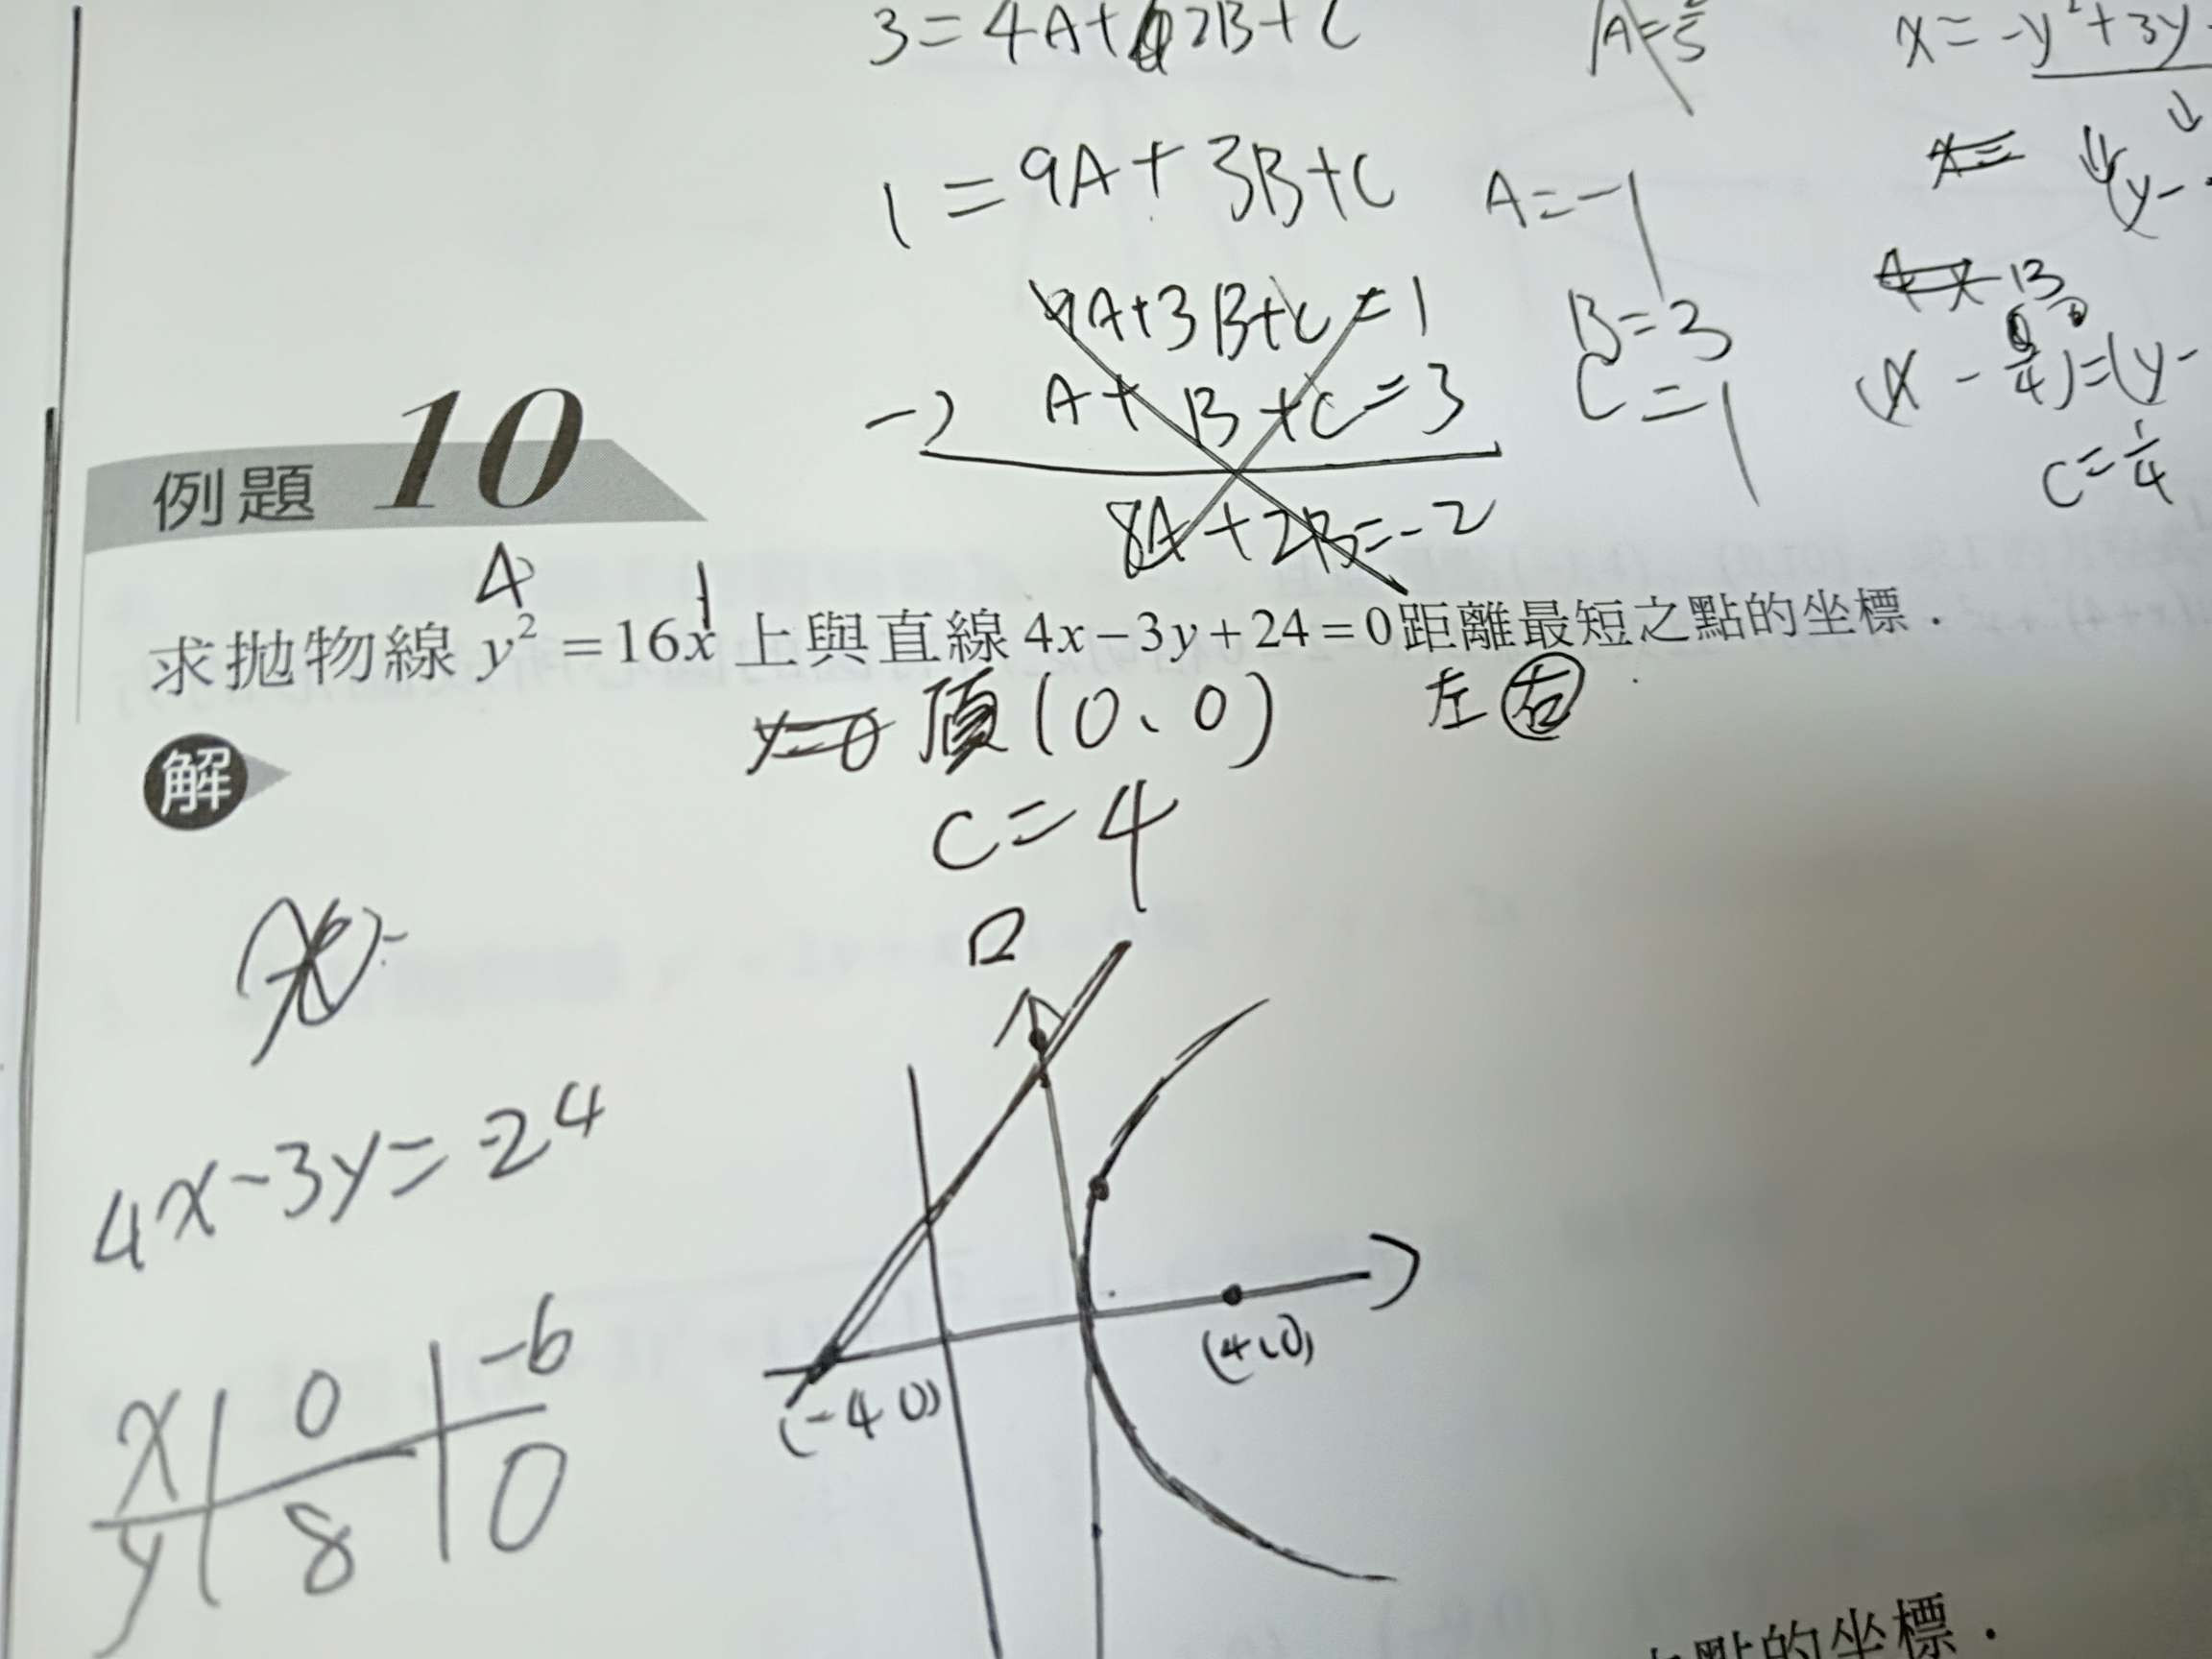 3=4A+2B+C
A=
x=-y²+3y
1=9A+3B+C
A=-1
x=
(y-
9A+3B+C=1
B=3
A+B+C=3
C=1
(x-
4)=(y-
-)
8A+2B=-2
C=1/4
例題 10
求拋物線 y² = 16x 上與直線 4x−3y+24=0 距離最短之點的坐標．
y=0 頂(0、0)
左 右
解
C=4
4x-3y=-24
x 0 -6
y 8 0
(-4,0)
(4,0)
點的坐標．